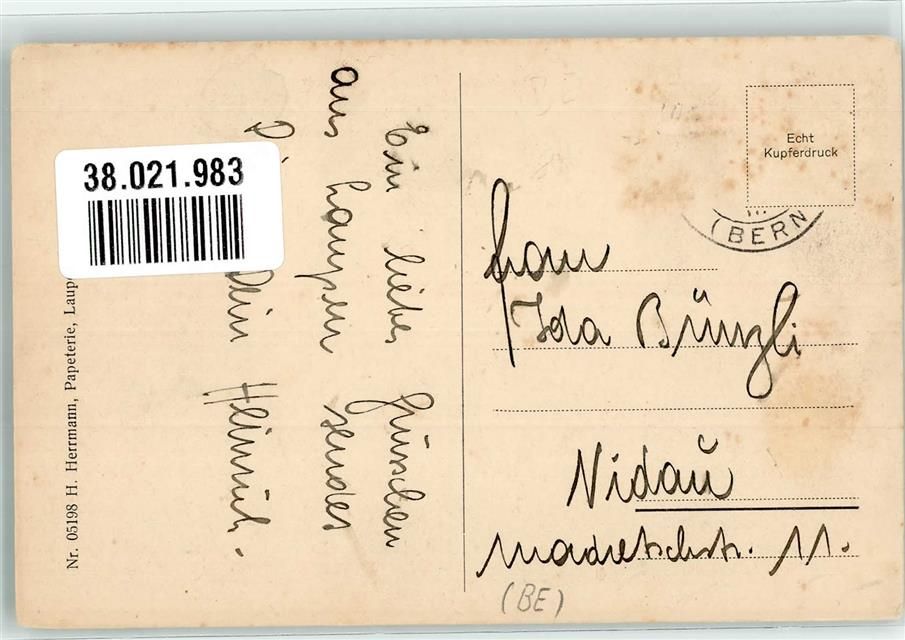 38.021.983
Nr. 05198 H. Herrmann, Papeterie, Laup
Ein liebes Grüschen
aus Laupen sendet
Dein Heinrich.
Echt
Kupferdruck
(BERN
Frau
Ida Bünzli
Nidau
Madretschstr. 11.
(BE)